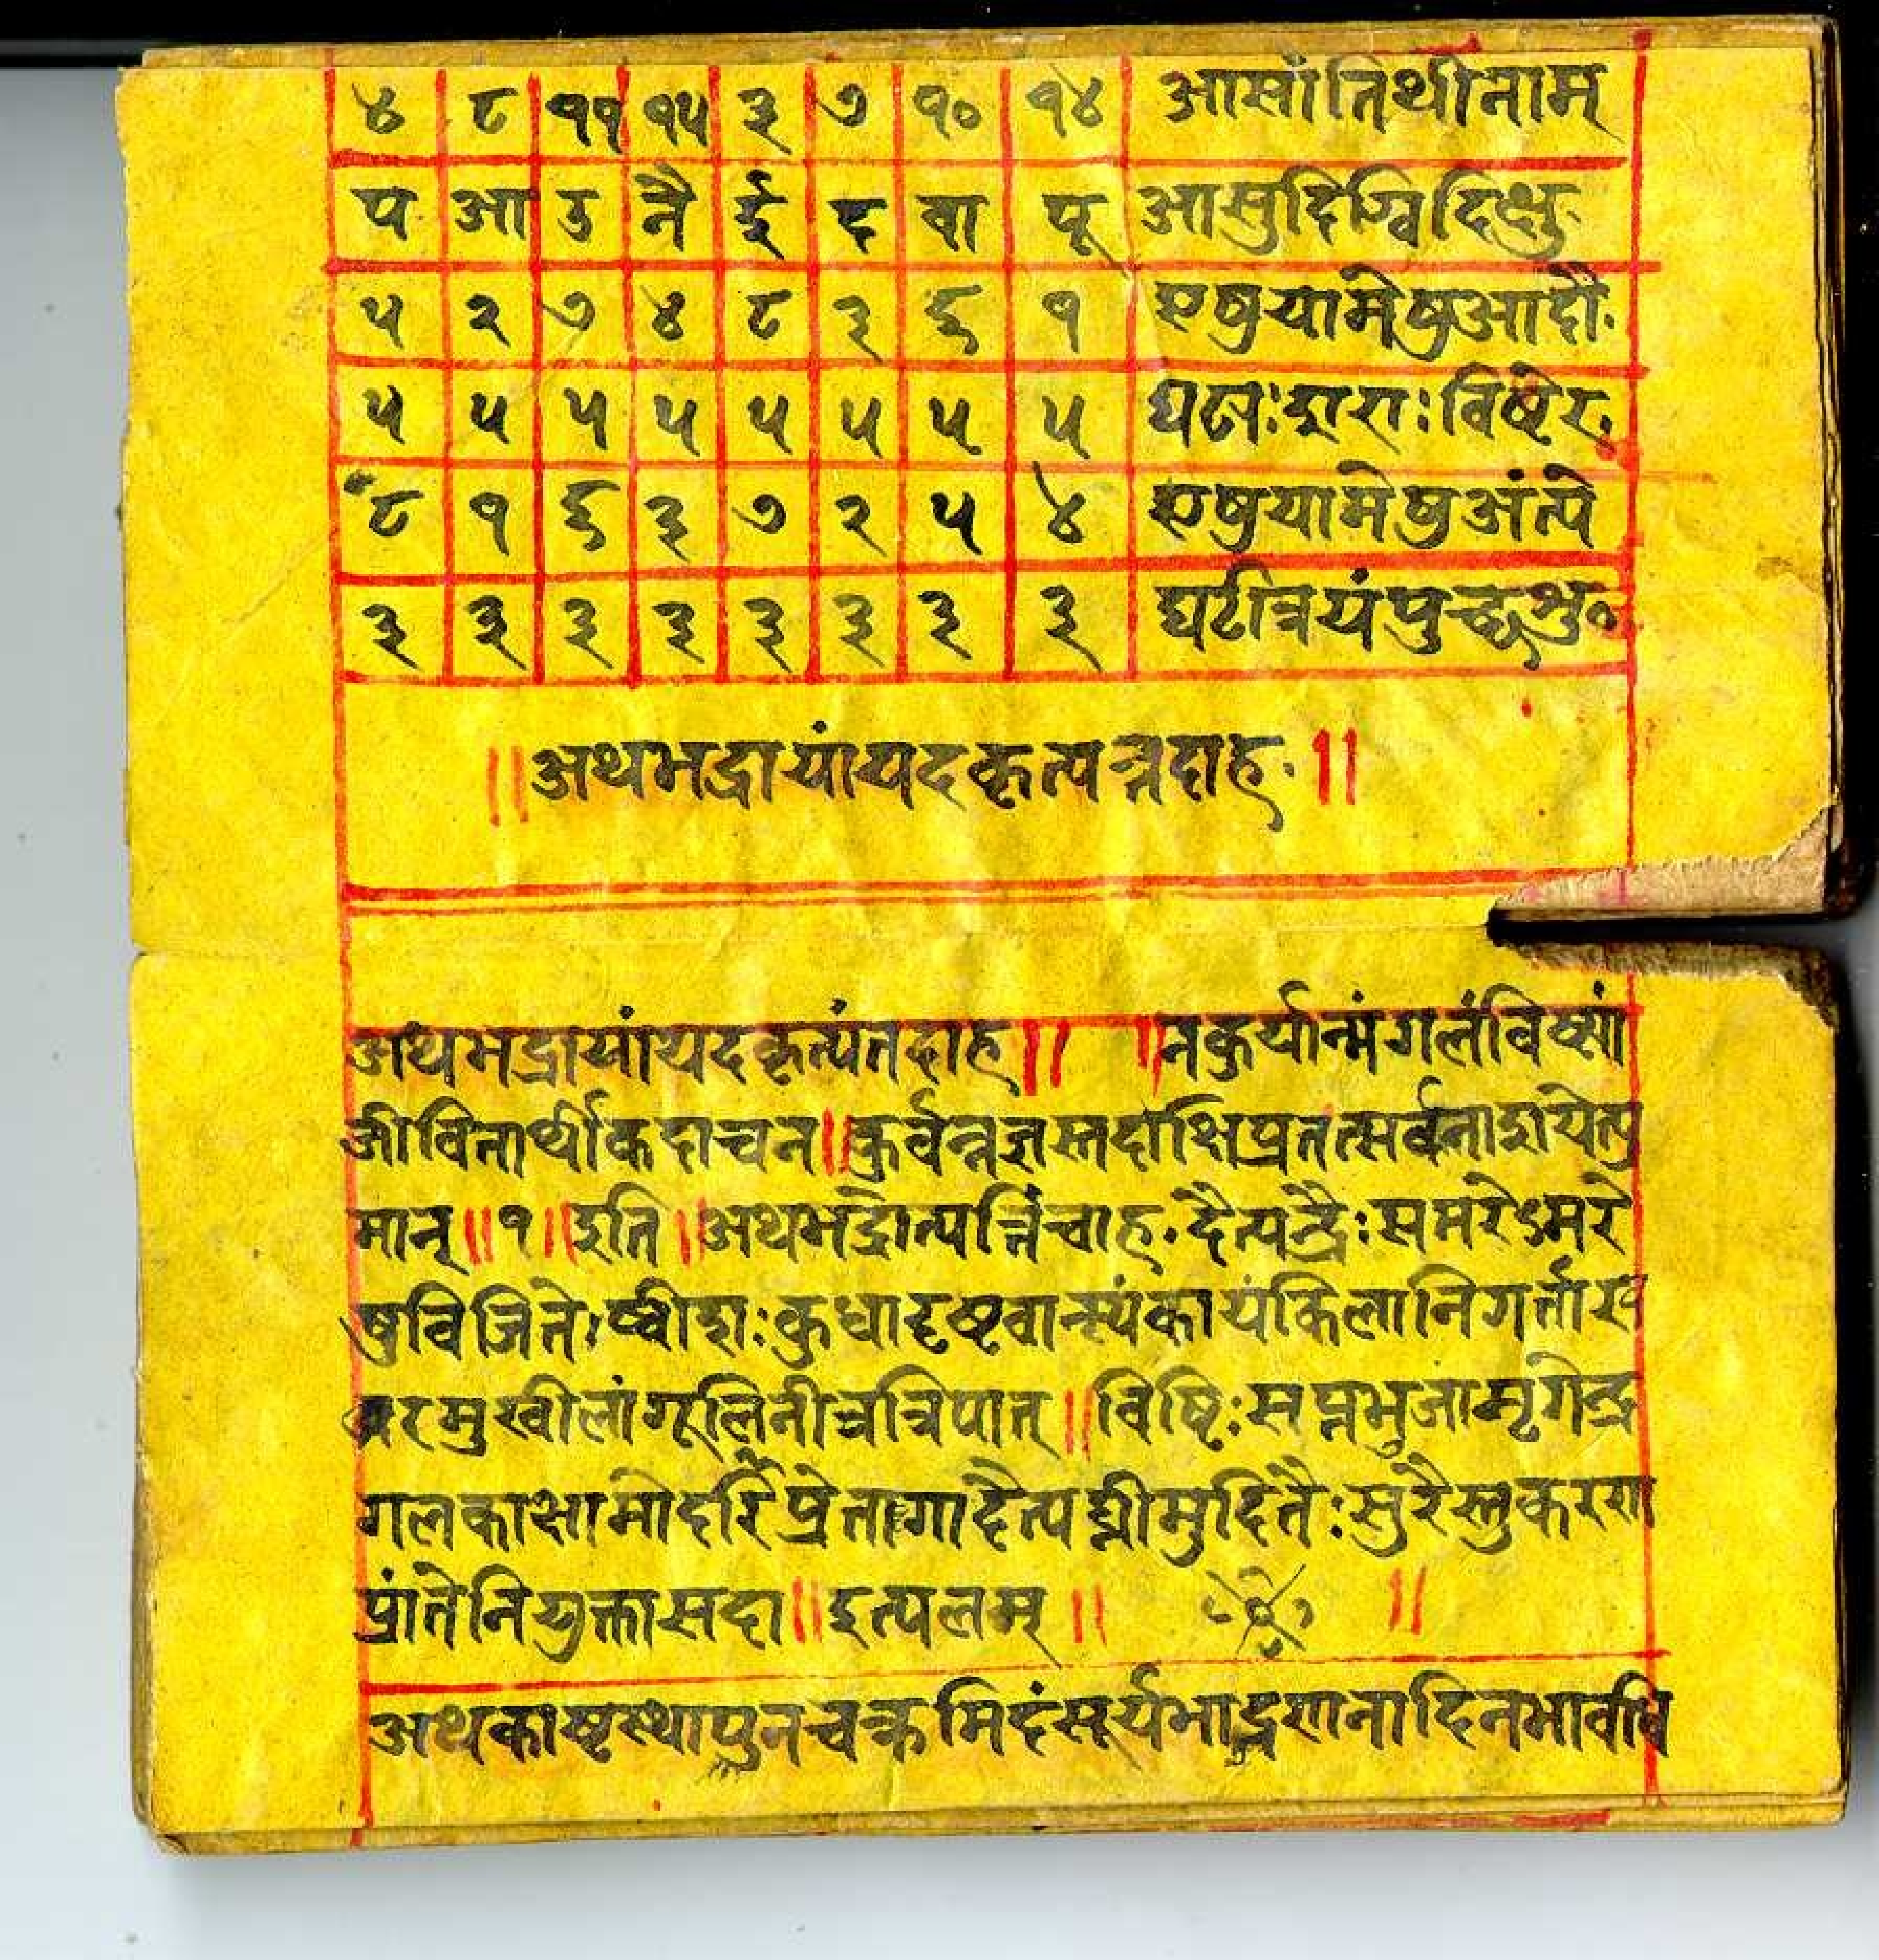 ४ ८ ११ १५ ३ ७ १० १४ आसांतिथीनाम्
प आ उ नै ई द वा पू आसुदिग्विदिक्षु
५ २ ७ ४ ८ ३ ६ १ एषुयामेषुआदौ
५ ५ ५ ५ ५ ५ ५ ५ घट्यःशराःविष्टेर
८ १ ६ ३ ७ २ ५ ४ एषुयामेषुअंत्ये
३ ३ ३ ३ ३ ३ ३ ३ घटीत्रयंपुच्छशु०
॥अथभद्रायांयदकृत्यन्नदाह॥
अथभद्रायांयदकृत्यंतदाह॥ ॥नकुर्यान्मंगलंविष्ट्यां
जीवितार्थीकदाचन॥कुर्वन्नज्ञस्तदाक्षिप्रंतत्सर्वंनाशयेत्पु
मान्॥१॥इति॥अथभद्रोत्पत्तिंचाह॰दैत्यन्द्रैःसमरेऽमरे
षुविजितेष्वीशःक्रुधादृष्टवान्स्वंकायंकिलनिर्गताख
वरमुखीलांगूलिनीचत्रिपात्॥विष्टिःसप्तभुजामृगेन्द्र
गलकाक्षामोदरिप्रेतगादैत्यघ्नीमुदितैःसुरैस्तुकरण
प्रांतेनियुक्तासदा॥इत्यलम्॥ ॥
अथकाष्टस्थापुनचक्रमिदंसूर्यभाद्गणनादिनभावधि